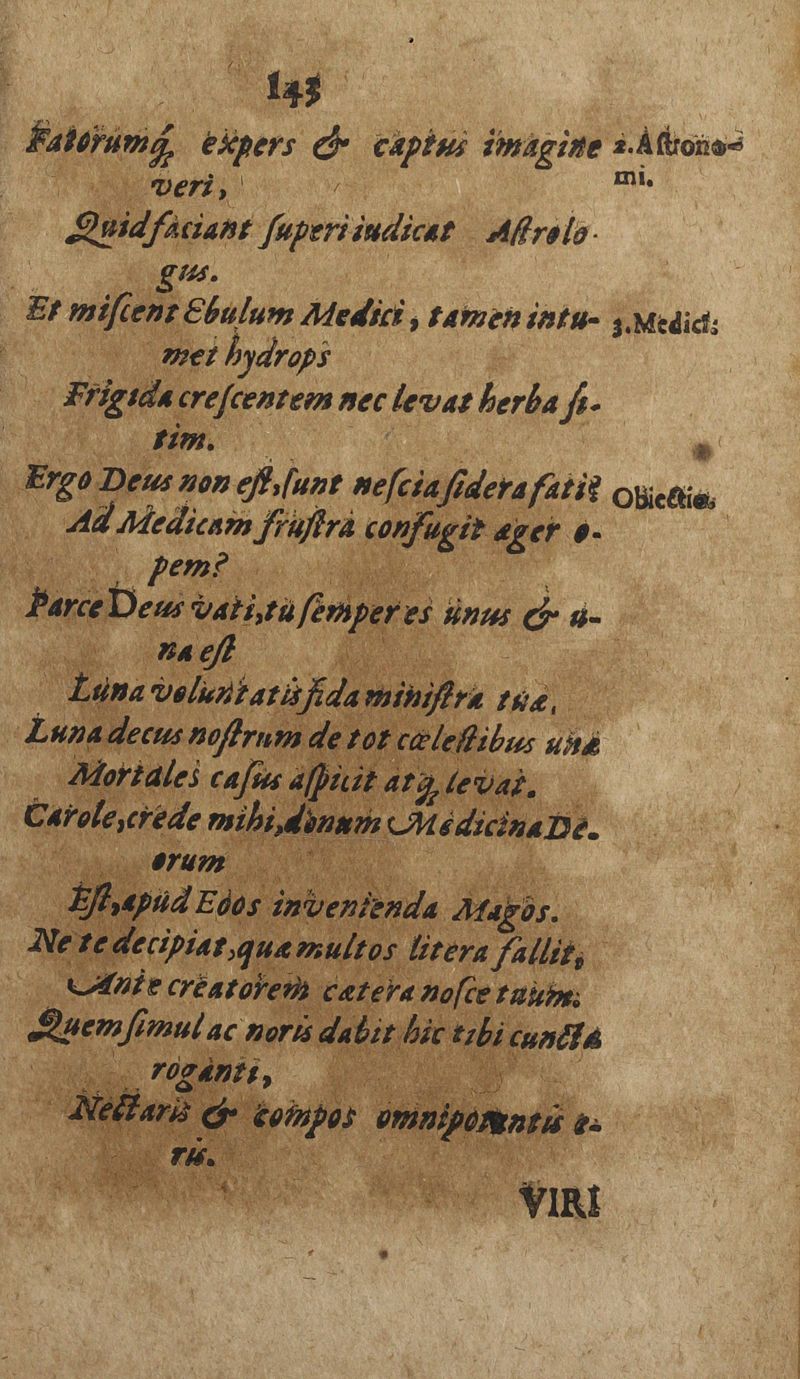 143
Fatorumq́; expers & captus imagine 2.Aſtrono-
veri, mi.
Quid faciant ſuperi iudicat Aſtrolo-
gus.
Et miſcent Ebulum Medici, tamen intu- 3.Medici;
met hydrops
Frigida creſcentem nec levat herba ſi-
tim.
Ergo Deus non eſt, ſunt neſcia ſidera fati? Obiectio;
Ad Medicam fruſtrà confugit æger o-
pem?
Parce Deus vati, tu ſemper es unus & u-
na eſt
Luna voluntatis fida miniſtra tuæ,
Luna decus noſtrum de tot cœleſtibus una
Mortales caſus aſpicit atq; levat.
Carole, crede mihi, donum Medicina De-
orum
Eſt, apud Eôos invenienda Magos.
Ne te decipiat, quæ multos litera fallit,
Ante creatorem cætera noſce tuum;
Quem ſimul ac noris dabit hic tibi cuncta
roganti,
Nectaris & compos omnipotentis e-
ris.
VIRI